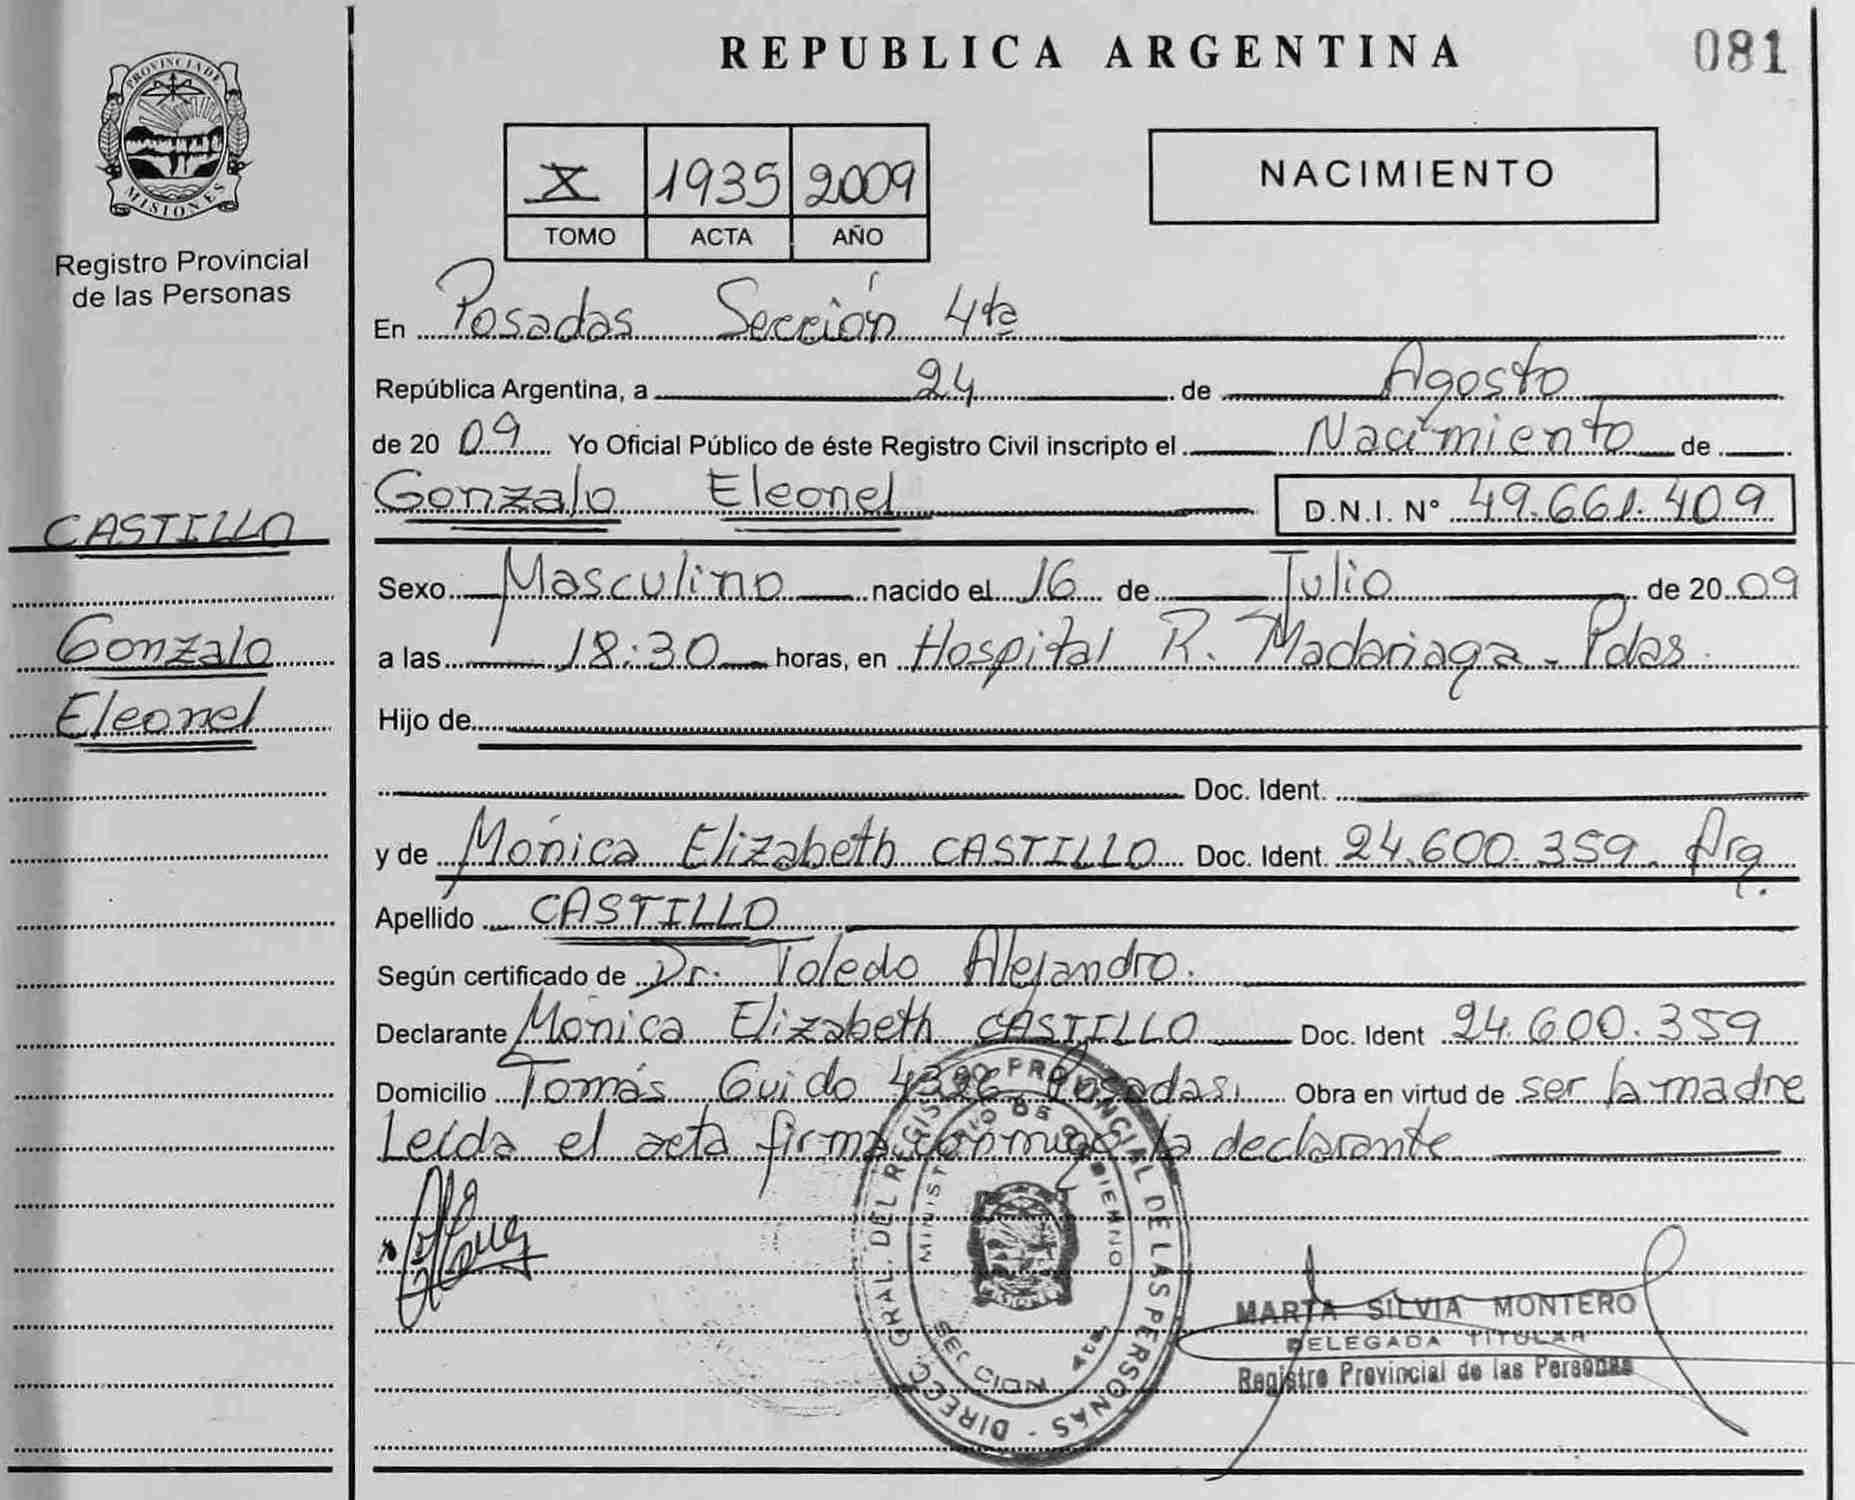 REPUBLICA ARGENTINA
081
PROVINCIA DE
MISIONES
Registro Provincial
de las Personas
X 1935 2009
TOMO ACTA AÑO
NACIMIENTO
En Posadas Sección 4ta
República Argentina, a 24 de Agosto
de 20 09 Yo Oficial Público de éste Registro Civil inscripto el Nacimiento de
Gonzalo Eleonel D.N.I. Nº 49.661.409
CASTILLO
Gonzalo
Eleonel
Sexo Masculino nacido el 16 de Julio de 20 09
a las 18:30 horas, en Hospital R. Madariaga - Pdas.
Hijo de
Doc. Ident.
y de Mónica Elizabeth CASTILLO Doc. Ident. 24.600.359. Arg.
Apellido CASTILLO
Según certificado de Dr. Toledo Alejandro.
Declarante Mónica Elizabeth CASTILLO Doc. Ident 24.600.359
Domicilio Tomás Guido 4326 Posadas, Obra en virtud de ser la madre
Leída el acta firma conmigo la declarante
DIRECC. GRAL. DEL REGISTRO PROVINCIAL DE LAS PERSONAS -
MINISTERIO DE GOBIERNO
MISIONES
SECCION 4ta
MARTA SILVIA MONTERO
DELEGADA TITULAR
Registro Provincial de las Personas